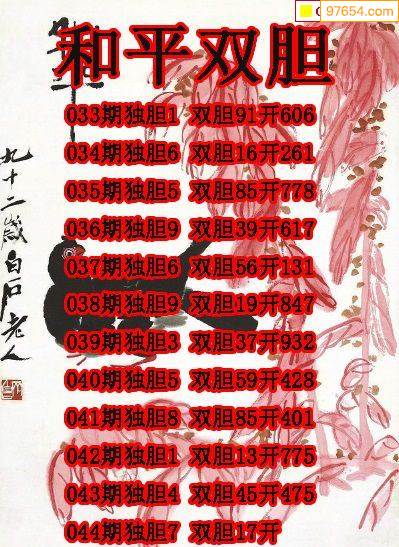 97654.com
和平双胆
033期独胆1 双胆91开606
034期独胆6 双胆16开261
035期独胆5 双胆85开778
036期独胆9 双胆39开617
037期独胆6 双胆56开131
038期独胆9 双胆19开847
039期独胆3 双胆37开932
040期独胆5 双胆59开428
041期独胆8 双胆85开401
042期独胆1 双胆13开775
043期独胆4 双胆45开475
044期独胆7 双胆17开
九十二岁白石老人